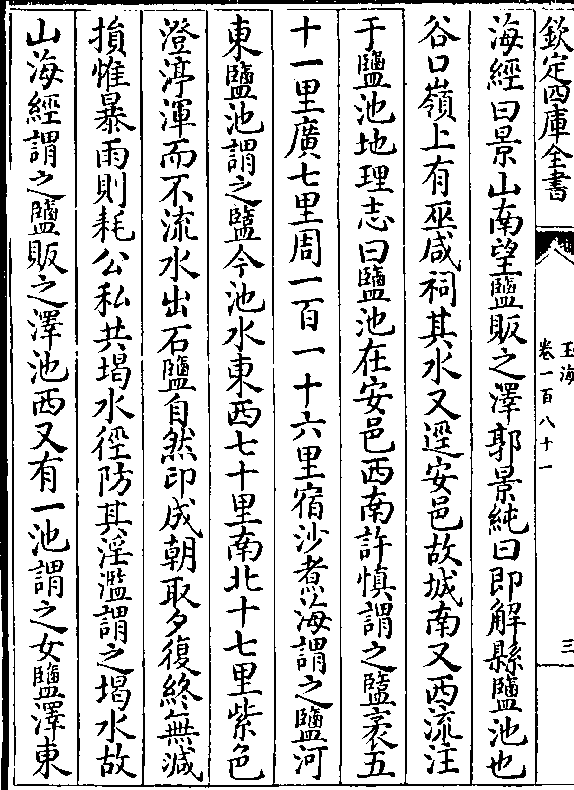 欽定四庫全書
玉海
卷一百八十一
三
海經曰景山南望鹽販之澤郭景純曰即解縣鹽池也
谷口嶺上有巫咸祠其水又逕安邑故城南又西流注
于鹽池地理志曰鹽池在安邑西南許慎謂之鹽袤五
十一里廣七里周一百一十六里宿沙煮海謂之鹽河
東鹽池謂之鹽今池水東西七十里南北十七里紫色
澄渟渾而不流水出石鹽自然印成朝取夕復終無減
損惟暴雨則耗公私共堨水徑防其淫濫謂之堨水故
山海經謂之鹽販之澤池西又有一池謂之女鹽澤東